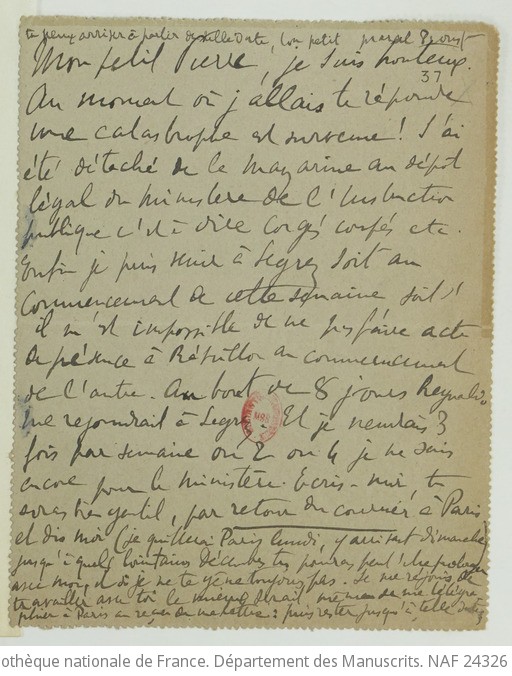 tu peux arriver à partir de telle date, ton petit Marcel
Mon petit Pierre, je suis honteux.
37
Au moment où j'allais te répondre
une catastrophe est survenue ! J'ai
été détaché de la Mazarine au dépôt
légal du ministère de l'Instruction
publique c'est à dire congés coupés etc.
Enfin je puis venir à Segrez soit au
commencement de cette semaine soit s'
il m'est impossible de ne pas faire acte
de présence à Réveillon au commencement
de l'autre. Au bout de 8 jours Reynaldo
me rejoindrait à Segrez Et je viendrais 3
fois par semaine ou 2 ou 4 je ne sais
encore pour le ministère. Ecris-moi, tu
seras bien gentil, par retour du courrier à Paris
et dis moi (je quitterai Paris lundi, y arrivant dimanche)
jusqu'à quels lointains Décembres tu pourras
avec moi, et si je ne te gêne toujours pas. Je me réjouis de
travailler avec toi. Le mieux serait même de me télégra
phier à Paris au reçu de ma lettre : puis rester jusqu'à telle date
othèque nationale de France. Département des Manuscrits. NAF 24326